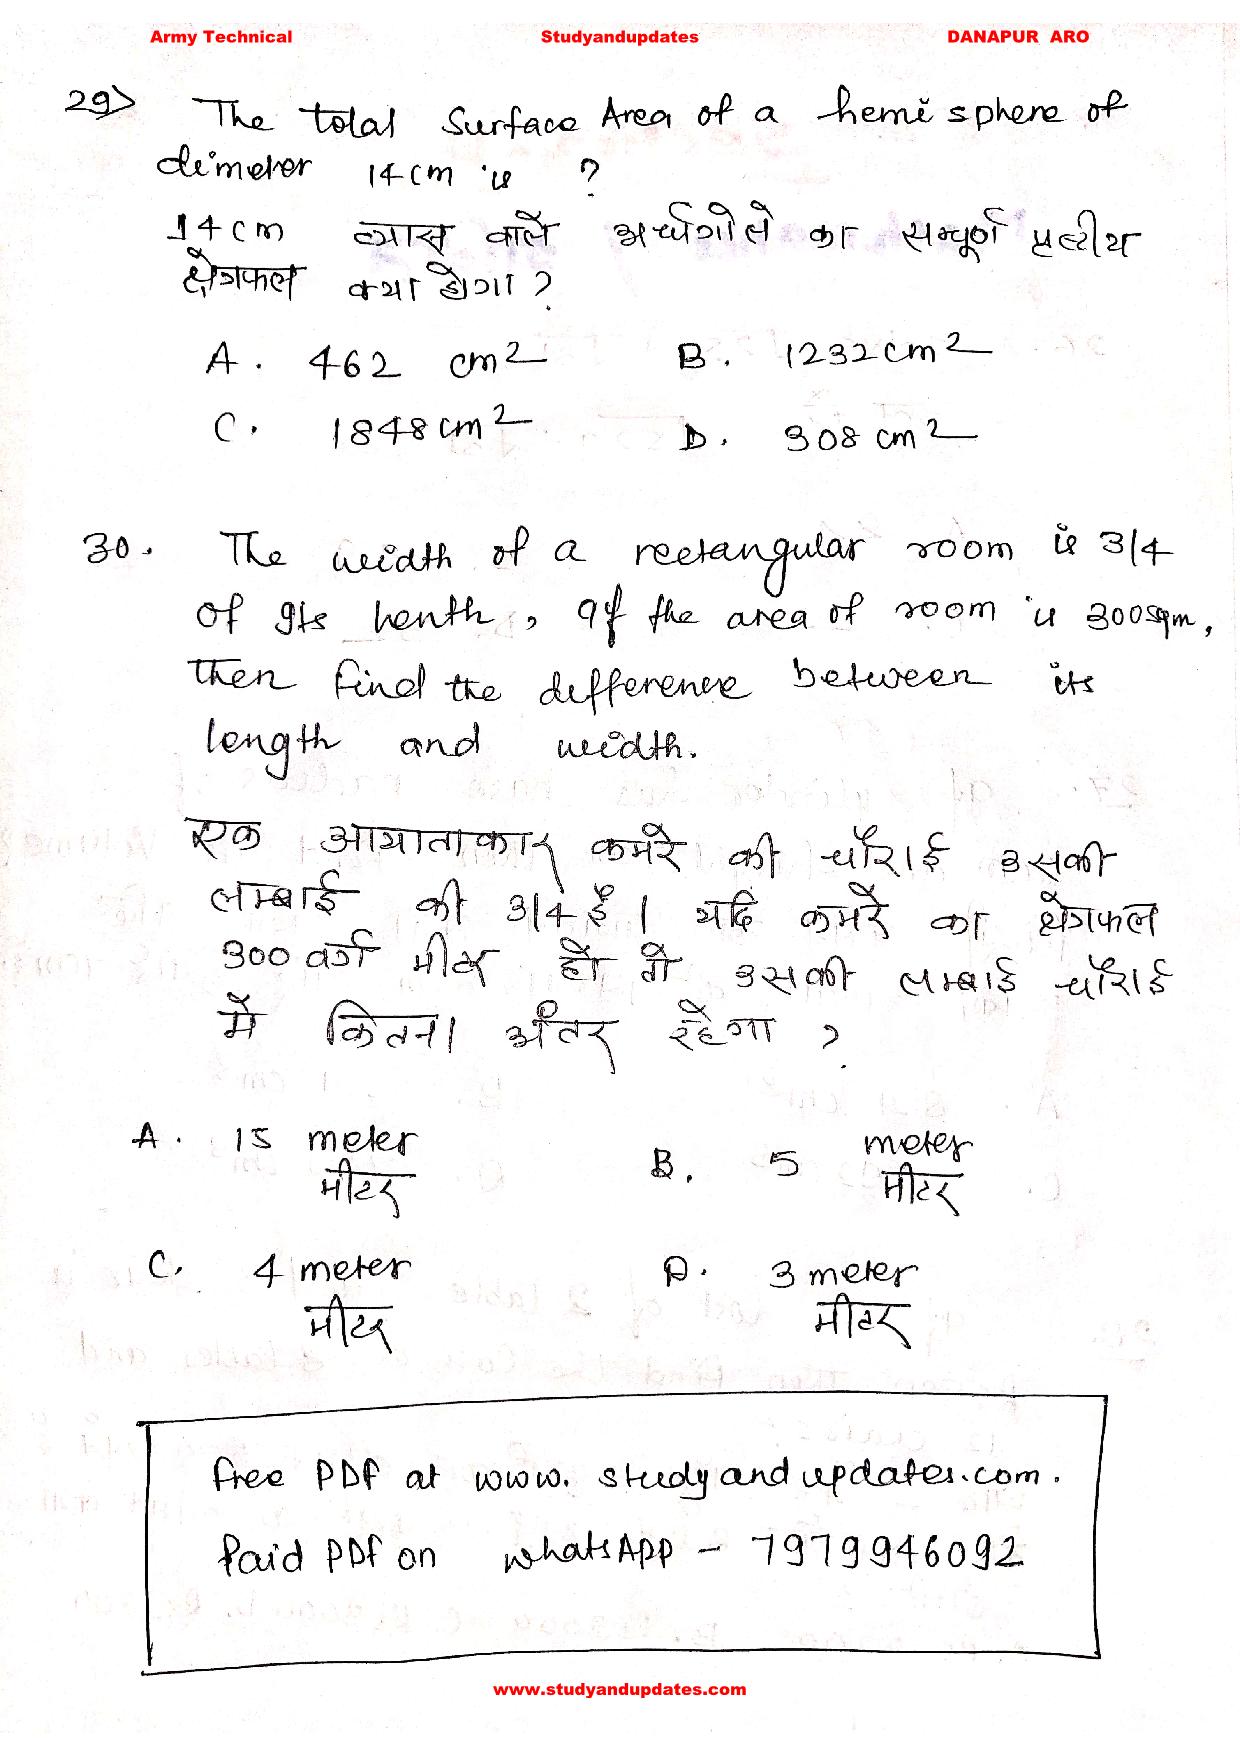 Army Technical Studyandupdates DANAPUR ARO
29> The total Surface Area of a hemisphere of
dimeter 14cm is ?
14cm व्यास वाले अर्धगोले का सम्पूर्ण पृष्टीय
क्षेत्रफल क्या होगा?
A. 462 cm2 B. 1232cm2
C. 1848cm2 D. 308cm2
30. The width of a rectangular room is 3/4
of Its lenth, If the area of room is 300sqm,
then find the difference between its
length and width.
एक आयाताकार कमरे की चौराई उसकी
लम्बाई की 3/4 है। यदि कमरे का क्षेत्रफल
300 वर्ग मीटर हो तो उसकी लम्बाई चौराई
में कितना अंतर रहेगा ?
A. 15 meter B. 5 meter
मीटर मीटर
C. 4 meter D. 3 meter
मीटर मीटर
free PDF at www.studyandupdates.com.
Paid PDF on whatsApp - 7979946092
www.studyandupdates.com